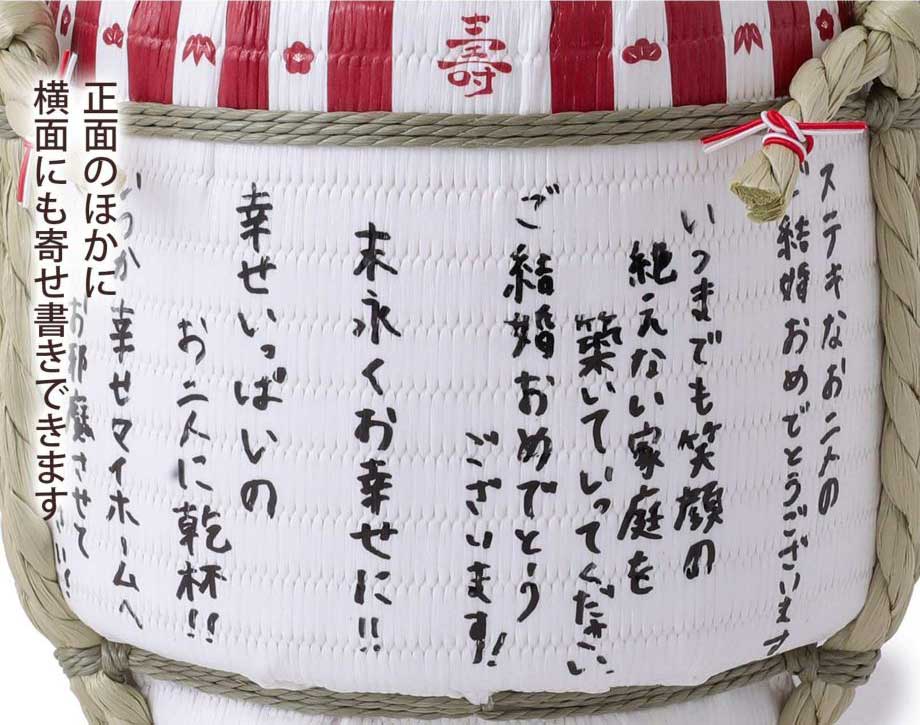 壽
正面のほかに
横面にも寄せ書きできます
ステキなお二人の
ご結婚おめでとうございます
いつまでも笑顔の
絶えない家庭を
築いていってください
ご結婚おめでとう
ございます!
末永くお幸せに!!
幸せいっぱいの
お二人に乾杯!!
いつか幸せマイホームへ
お邪魔させて
さい!